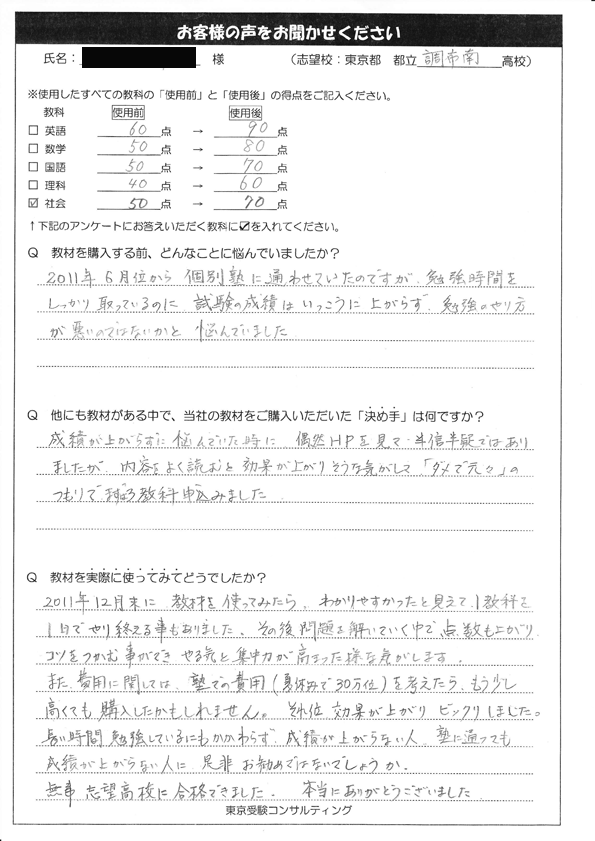 お客様の声をお聞かせください
氏名： 様 （志望校：東京都 都立 調布南 高校）
※使用したすべての教科の「使用前」と「使用後」の得点をご記入ください。
教科 使用前 使用後
□ 英語 60 点 → 90 点
□ 数学 50 点 → 80 点
□ 国語 50 点 → 70 点
□ 理科 40 点 → 60 点
☑ 社会 50 点 → 70 点
↑下記のアンケートにお答えいただく教科に☑を入れてください。
Q 教材を購入する前、どんなことに悩んでいましたか？
2011年6月位から 個別塾に通わせていたのですが、勉強時間を
しっかり取っているのに 試験の成績はいっこうに上がらず、勉強のやり方
が悪いのではないかと 悩んでいました
Q 他にも教材がある中で、当社の教材をご購入いただいた「決め手」は何ですか？
成績が上がらずに悩んでいた時に 偶然HPを見て、半信半疑ではあり
ましたが、内容をよく読むと効果が上がりそうな気がして「ダメで元々」の
つもりで 教科申込みました。
Q 教材を実際に使ってみてどうでしたか？
2011年12月末に 教材を使ってみたら、わかりやすかったと見えて、1教科を
1日でやり終える事もありました、その後問題を解いていく中で点数も上がり、
コツをつかむ事ができ やる気と集中力が高まった様な気がします。
また、費用に関しては、塾での費用（夏休みで30万位）を考えたら、もう少し
高くても購入したかもしれません。それ位 効果が上がり ビックリしました。
長い時間勉強しているにもかかわらず、成績が上がらない人、塾に通っても
成績が上がらない人に、是非お勧めではないでしょうか。
無事 志望高校に合格できました。 本当にありがとうございました
東京受験コンサルティング